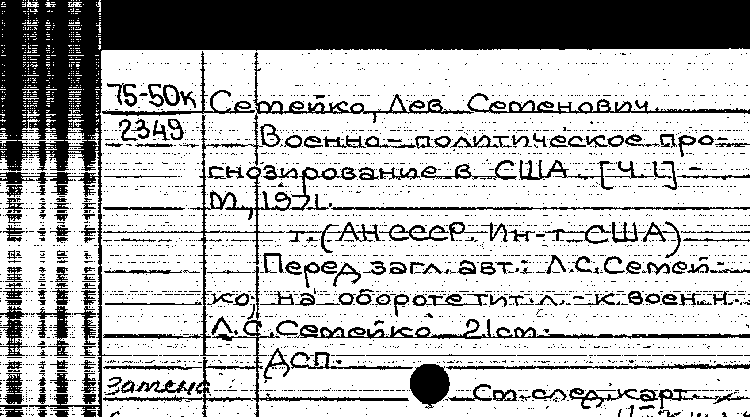 75-50к Семейко, Лев Семенович.
2349 Военно-политическое про-
гнозирование в США. [Ч. 1] -
М., 1971.
т. (АН СССР. Ин-т США)
Перед загл. авт.: Л.С. Семей-
ко, на обороте тит. л. - к. воен. н.
Л.С. Семейко 21 см.
ДСП.
Замена См. след. карт.